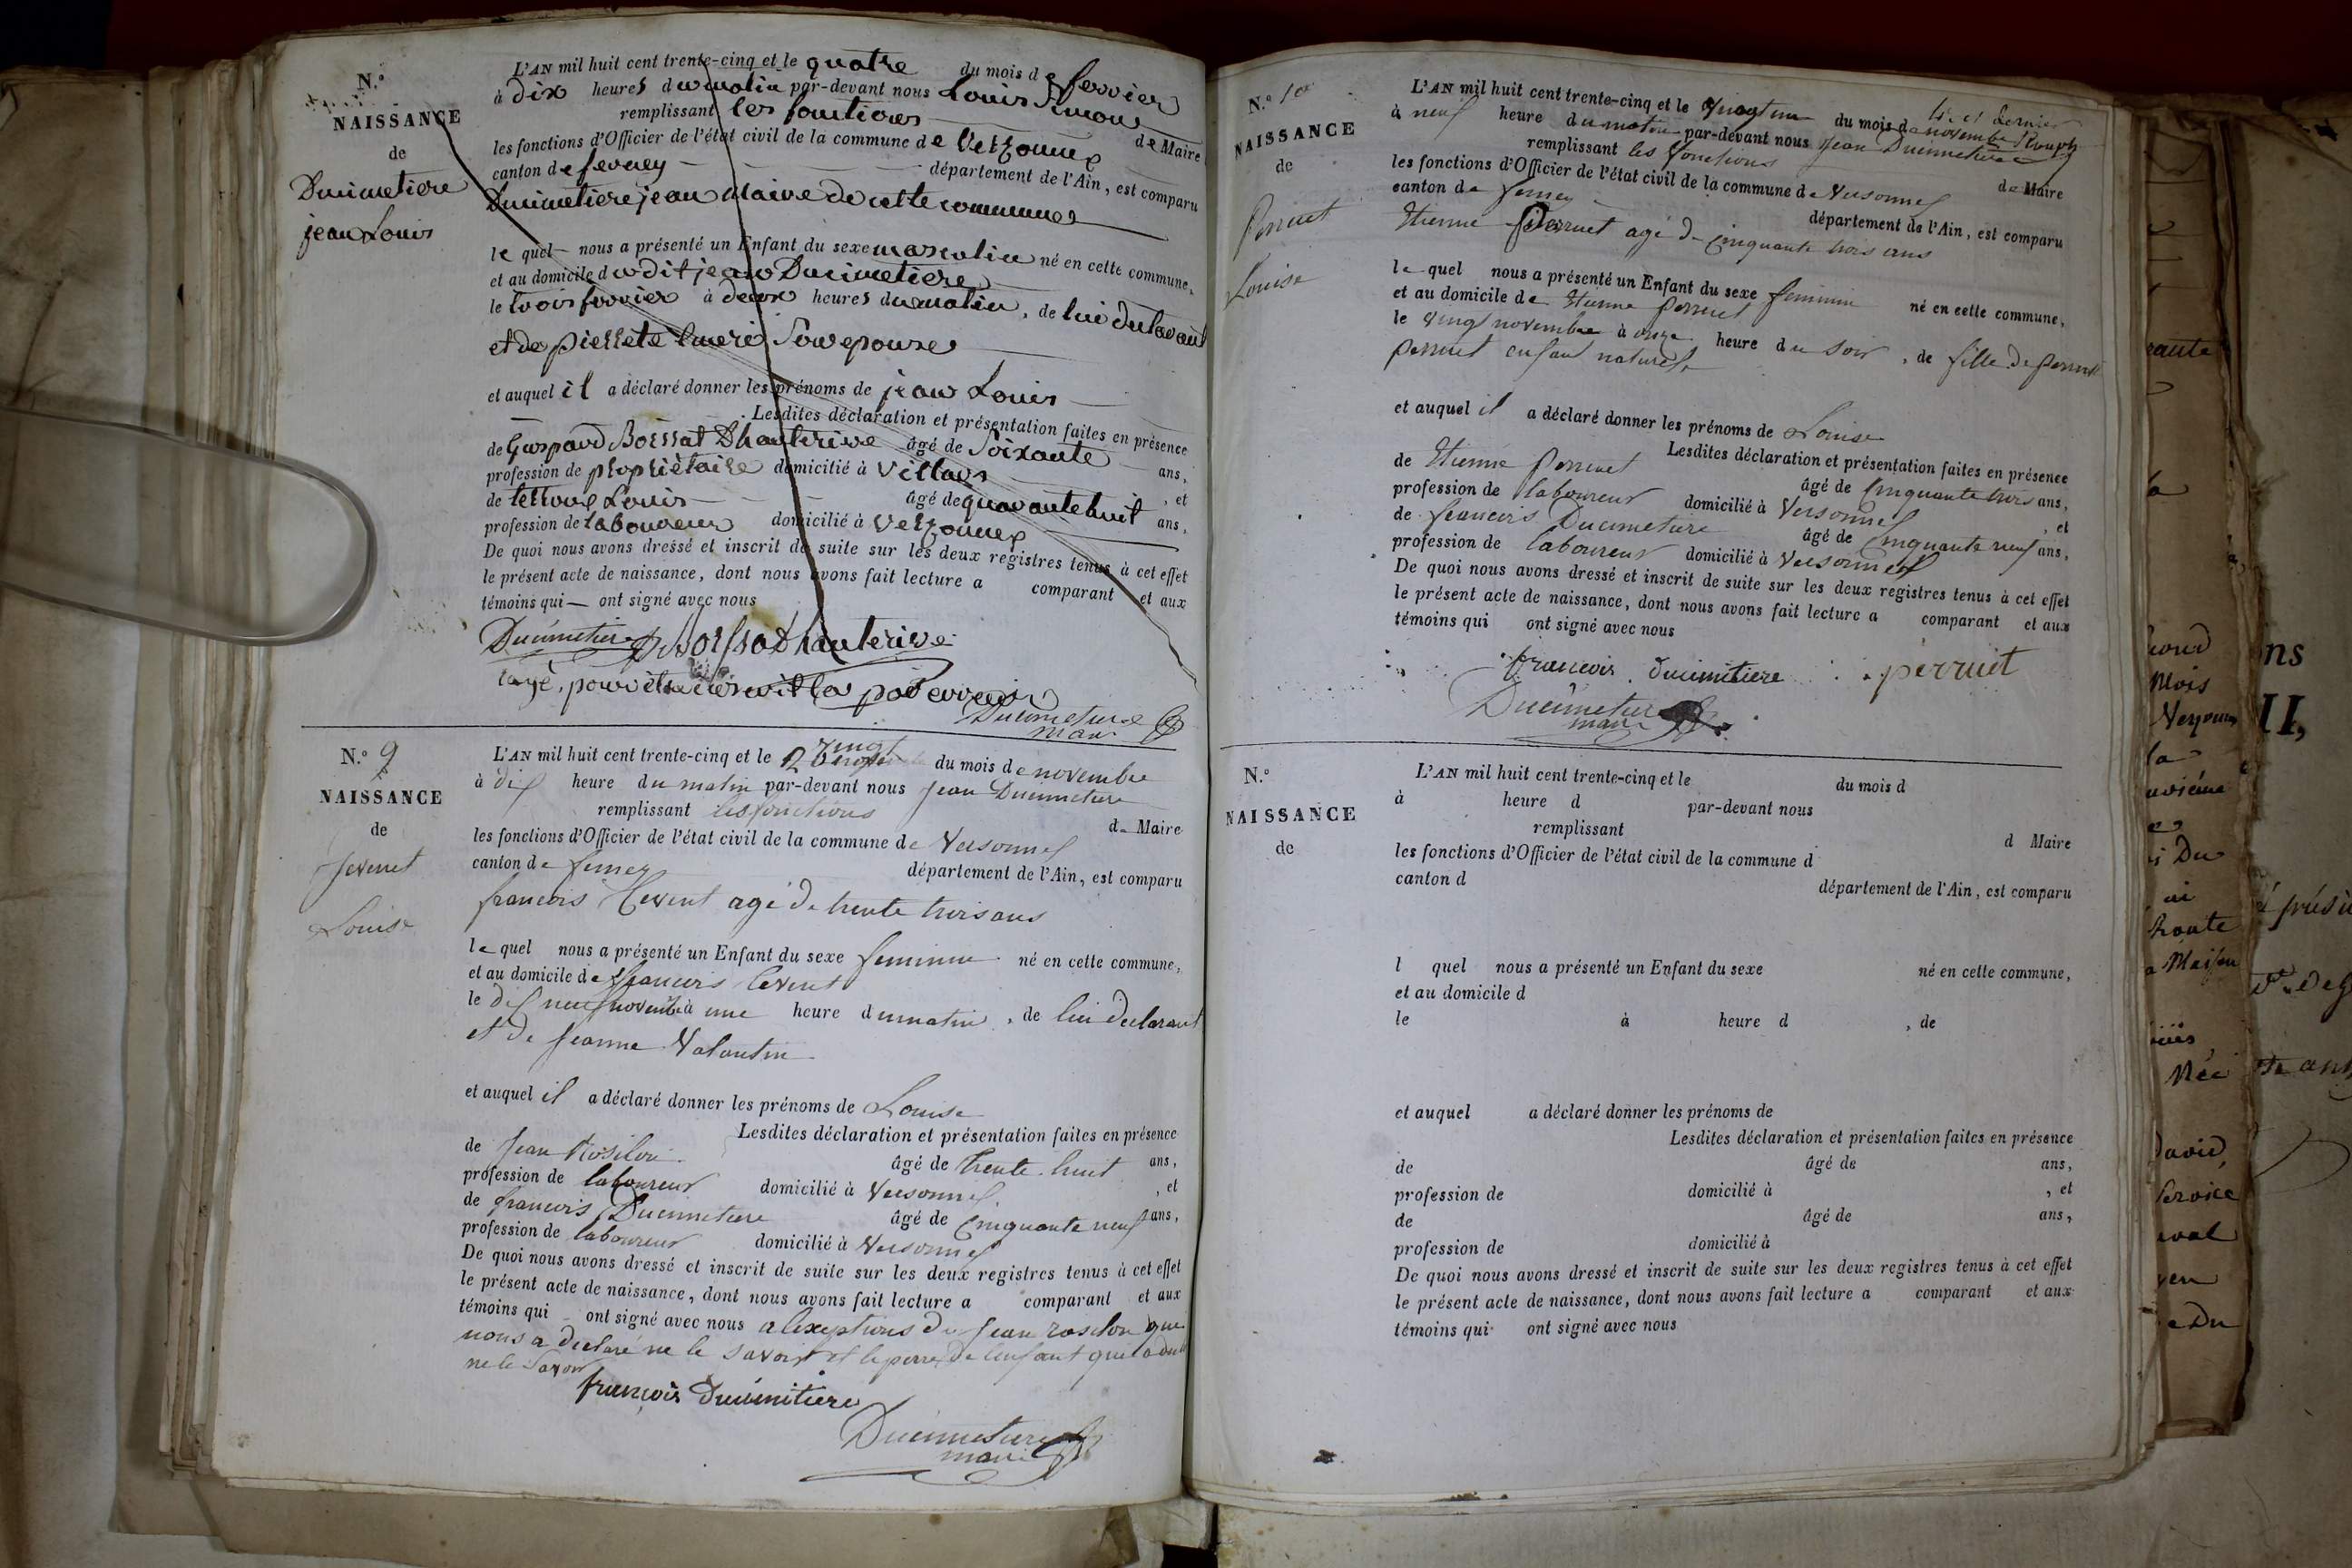 N.°
NAISSANCE
de
Ducimetiere
jean Louis
L'AN mil huit cent trente-cinq et le quatre du mois de fevrier
à dix heures du matin par-devant nous Louis Simon
remplissant les fonctions de Maire
les fonctions d'Officier de l'état civil de la commune de Verzonnex
canton de ferney département de l'Ain, est comparu
Ducimetiere jean Maire de cette commune
le quel nous a présenté un Enfant du sexe masculin né en cette commune,
et au domicile du dit jean Ducimetiere
le trois fevrier à deux heures du matin, de lui declarant
et de son epouse
et auquel il a déclaré donner les prénoms de jean Louis
Lesdites déclaration et présentation faites en présence
de Gaspard Boissat Dhauterive âgé de Soixante ans,
profession de propriètaire domicilié à Villars, et
de Louis âgé de quarante huit ans,
profession de laboureur domicilié à Verzonnex
De quoi nous avons dressé et inscrit de suite sur les deux registres tenus à cet effet
le présent acte de naissance, dont nous avons fait lecture a comparant et aux
témoins qui ont signé avec nous
Ducimetiere Boissat Dhauterive
rayé, pour être par erreur
Ducimetiere
maire
N.° 9
NAISSANCE
de
Louise
L'AN mil huit cent trente-cinq et le vingt du mois de novembre
à dix heure du matin par-devant nous Jean Ducimetiere
remplissant les fonctions de Maire
les fonctions d'Officier de l'état civil de la commune de Versonnex
canton de ferney département de l'Ain, est comparu
francois agé de trente trois ans
le quel nous a présenté un Enfant du sexe feminin né en cette commune,
et au domicile de francois
le dix neuf novembre à une heure du matin, de lui declarant
et de Jeanne Valentin
et auquel il a déclaré donner les prénoms de Louise
Lesdites déclaration et présentation faites en présence
de Jean Rosilon âgé de trente huit ans,
profession de laboureur domicilié à Versonnex, et
de francois Ducimetiere âgé de Cinquante neuf ans,
profession de laboureur domicilié à Versonnex
De quoi nous avons dressé et inscrit de suite sur les deux registres tenus à cet effet
le présent acte de naissance, dont nous avons fait lecture a comparant et aux
témoins qui ont signé avec nous a lexeptions de Jean rosilon que
nous a declaré ne le savoir et le perre de lenfant
ne le Savoir
françois Ducimitiere
Ducimetiere
maire
N.° 10
NAISSANCE
de
Perruet
Louise
et dernier
L'AN mil huit cent trente-cinq et le vingt un du mois de novembre
à neuf heure du matin par-devant nous Jean Ducimetiere
remplissant les fonctions de Maire
les fonctions d'Officier de l'état civil de la commune de Versonnex
canton de ferney département de l'Ain, est comparu
Etienne Perruet agé de cinquante trois ans
le quel nous a présenté un Enfant du sexe feminin né en cette commune,
et au domicile de Etienne perruet
le vingt novembre à onze heure du soir, de fille de
perruet enfant naturelle
et auquel il a déclaré donner les prénoms de Louise
Lesdites déclaration et présentation faites en présence
de Etienne perruet âgé de Cinquante trois ans,
profession de laboureur domicilié à Versonnex, et
de francois Ducimetiere âgé de Cinquante neuf ans,
profession de laboureur domicilié à Versonnex
De quoi nous avons dressé et inscrit de suite sur les deux registres tenus à cet effet
le présent acte de naissance, dont nous avons fait lecture a comparant et aux
témoins qui ont signé avec nous
francois ducimitiere perruet
Ducimetiere
maire
N.°
NAISSANCE
de
L'AN mil huit cent trente-cinq et le du mois d
à heure d par-devant nous
remplissant d Maire
les fonctions d'Officier de l'état civil de la commune d
canton d département de l'Ain, est comparu
l quel nous a présenté un Enfant du sexe né en cette commune,
et au domicile d
le à heure d , de
et auquel a déclaré donner les prénoms de
Lesdites déclaration et présentation faites en présence
de âgé de ans,
profession de domicilié à , et
de âgé de ans,
profession de domicilié à
De quoi nous avons dressé et inscrit de suite sur les deux registres tenus à cet effet
le présent acte de naissance, dont nous avons fait lecture a comparant et aux
témoins qui ont signé avec nous